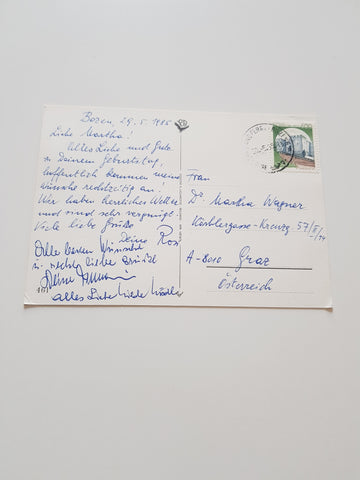 Bozen, 29.5.1985
Liebe Martha!
Alles Liebe und Gute
zu Deinem Geburtstag,
hoffentlich kommen meine
wünsche rechtzeitig an!
Wir haben herrliches Wetter
und sind sehr vergnügt.
Viele liebe Grüße
Deine Rosi
Alle besten Wünsche
u. recht liebe Grüße
Deine
alles Liebe Hilde
Frau
Dr. Martha Wagner
57/II/14
A-8010 Graz
Österreich